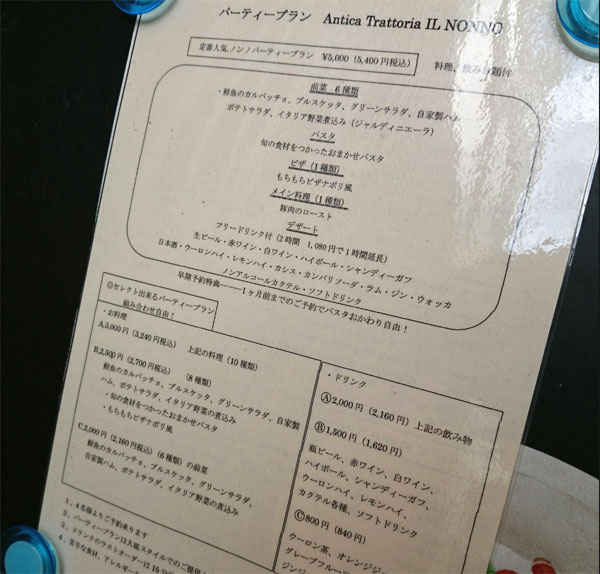 パーティープラン Antica Trattoria IL NONNO
定番人気.ノンノパーティープラン ¥5,000（5,400円税込）
料理、飲み放題付
前菜 6種類
・鮮魚のカルパッチョ、ブルスケッタ、グリーンサラダ、自家製ハム
ポテトサラダ、イタリア野菜煮込み（ジャルディニエーラ）
パスタ
旬の食材をつかったおまかせパスタ
ピザ（1種類）
もちもちピザナポリ風
メイン料理（1種類）
豚肉のロースト
デザート
フリードリンク付（2時間 1,080円で1時間延長）
生ビール・赤ワイン・白ワイン・ハイボール・シャンディーガフ
日本酒・ウーロンハイ・レモンハイ・カシス・カンパリソーダ・ラム・ジン・ウォッカ
ノンアルコールカクテル・ソフトドリンク
早期予約特典―――1ヶ月前までのご予約でパスタおかわり自由！
◎セレクト出来るパーティープラン
組み合わせ自由！
・お料理
A,3,000円（3,240円税込） 上記の料理（10種類）
B,2,500円（2,700円税込） （8種類）
鮮魚のカルパッチョ、ブルスケッタ、グリーンサラダ、自家製
ハム、ポテトサラダ、イタリア野菜の煮込み
・旬の食材をつかったおまかせパスタ
・もちもちピザナポリ風
C,2,000円（2,160円税込）（6種類）の前菜
鮮魚のカルパッチョ、ブルスケッタ、グリーンサラダ、
自家製ハム、ポテトサラダ、イタリア野菜の煮込み
・ドリンク
Ⓐ2,000円（2,160円）上記の飲み物
Ⓑ1,500円（1,620円）
瓶ビール、赤ワイン、白ワイン、
ハイボール、シャンディーガフ、
ウーロンハイ、レモンハイ、
カクテル各種、ソフトドリンク
Ⓒ800円（840円）
ウーロン茶、オレンジジ
グレープフルー
ジンジ
1、4名様よりご予約承ります
2、パーティープランは大皿スタイルでのご提供
3、ドリンクのラストオーダーは15分
4、苦手な食材、アレルギー